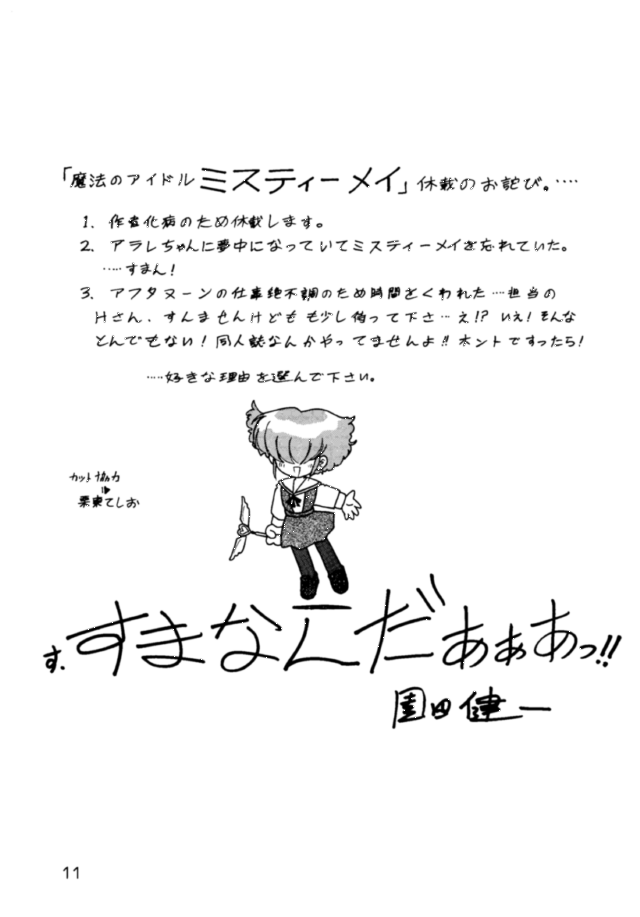 「魔法のアイドル ミスティーメイ」休載のお詫び。‥‥
1. 作者化病のため休載します。
2. アラレちゃんに夢中になっていてミスティーメイを忘れていた。
‥‥すまん!
3. アフタヌーンの仕事絶不調のため時間をくわれた‥‥担当の
Hさん、すんませんけどももう少し待って下さ‥‥え!? いえ! そんな
とんでもない! 同人誌なんかやってませんよ!! ホントですったら!
‥‥好きな理由を選んで下さい。
カット協力
栗東てしお
す、すまなーんだあぁあっ!!
園田健一
11